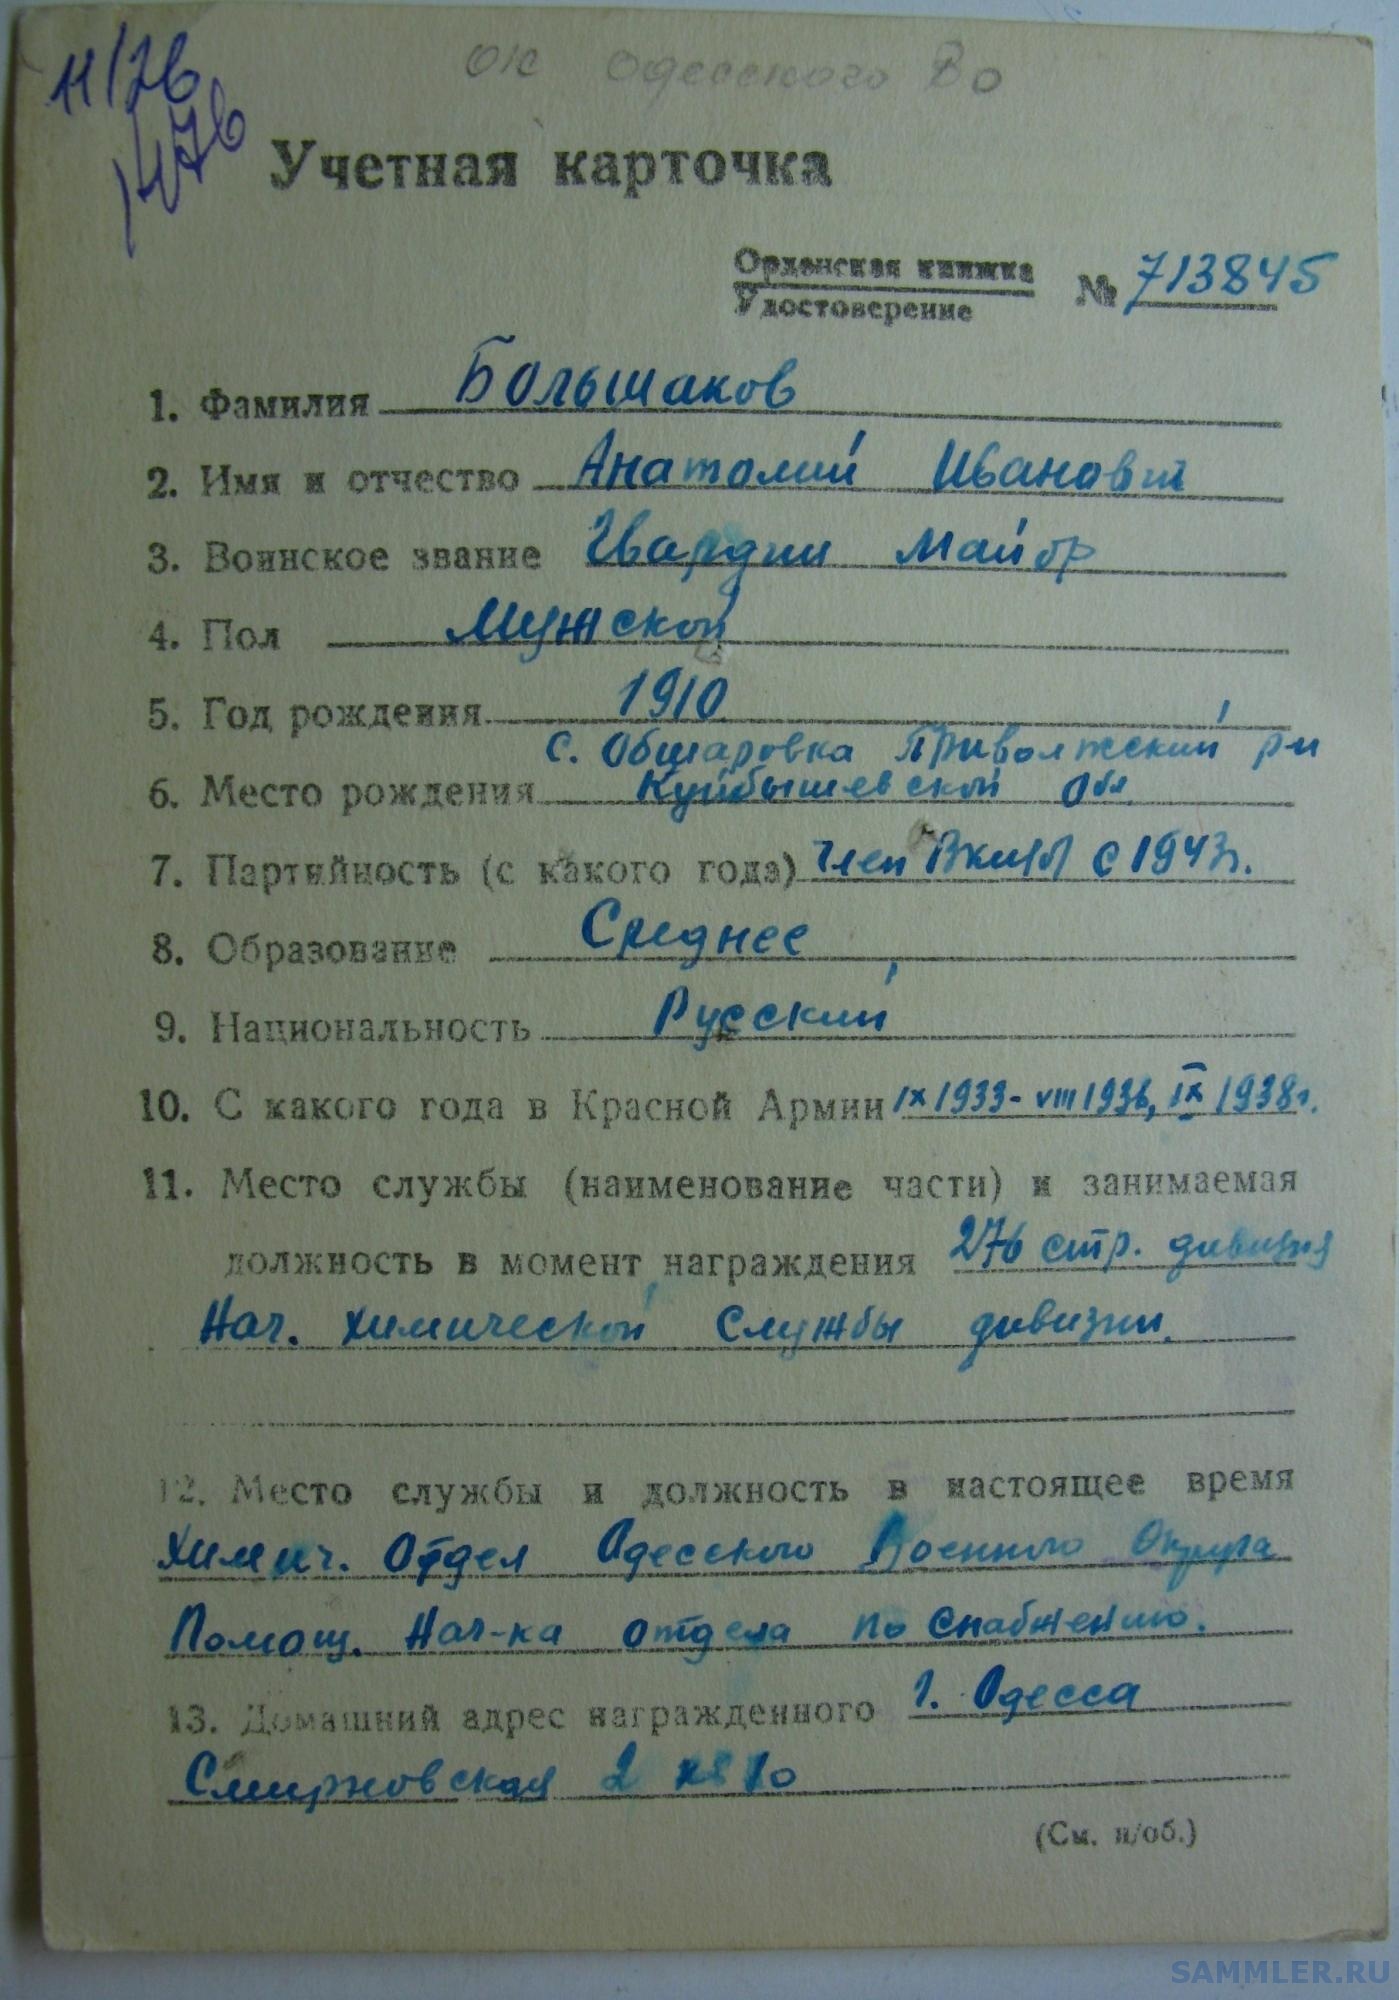 11/76
ОК Одесского ВО
Учетная карточка
Орденская книжка
Удостоверение
№ 713845
1. Фамилия Большаков
2. Имя и отчество Анатолий Иванович
3. Воинское звание Гвардии Майор
4. Пол Мужской
5. Год рождения 1910
с. Обшаровка Приволжский р-н
6. Место рождения Куйбышевской Обл.
7. Партийность (с какого года) Член ВКП(б) с 1943г.
8. Образование Среднее
9. Национальность Русский
10. С какого года в Красной Армии IX 1933-VIII 1936, IX 1938г.
11. Место службы (наименование части) и занимаемая
должность в момент награждения 276 стр. дивизия
Нач. химической службы дивизии.
12. Место службы и должность в настоящее время
Химич. Отдел Одесского Военного Округа
Помощ. Нач-ка отдела по снабжению.
13. Домашний адрес награжденного г. Одесса
Смирновская 2 кв 10
(См. н/об.)
SAMMLER.RU